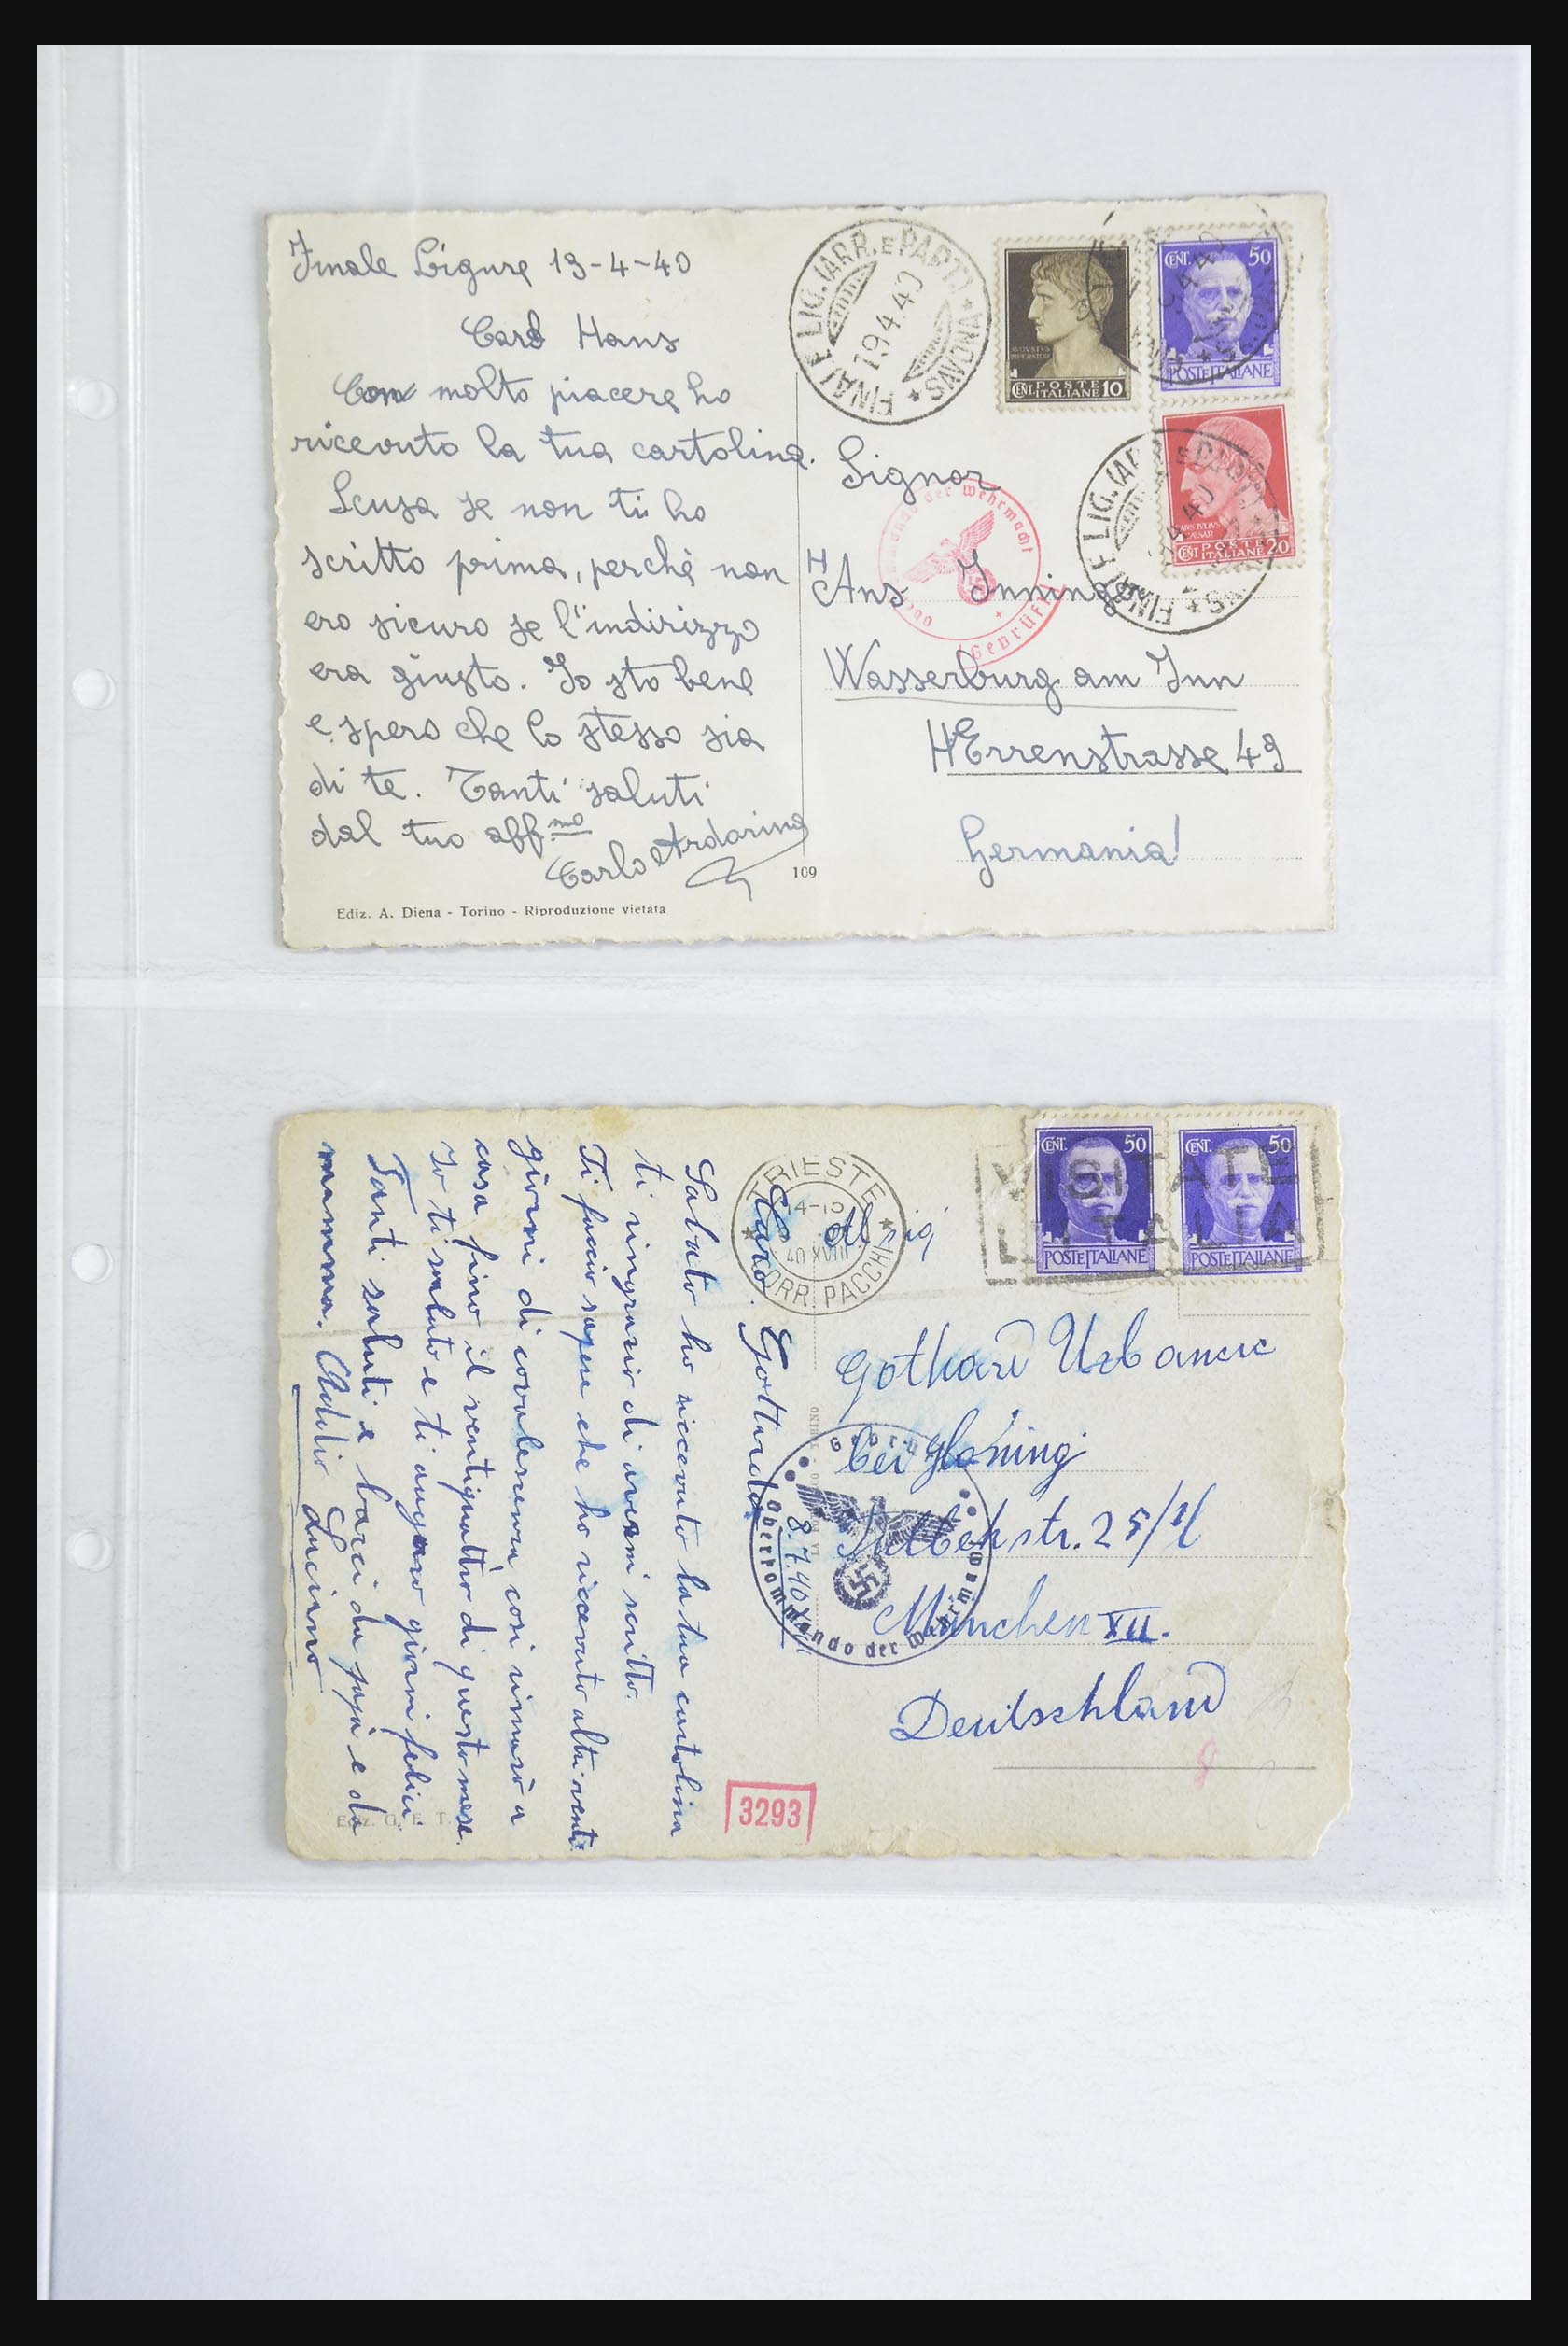 Finale Ligure 13-4-40
Caro Hans
Con molto piacere ho
ricevuto la tua cartolina.
Scusa se non ti ho
scritto prima, perchè non
ero sicuro se l'indirizzo
era giusto. Io sto bene
e spero che lo stesso sia
di te. Tanti saluti
dal tuo aff.mo
Carlo Ardorino
Ediz. A. Diena - Torino - Riproduzione vietata
109
FINALE LIG. (ARR. E PART.) * SAVONA *
19.4.40
AVGVSTVS
IMPERATOR
CENT. POSTE ITALIANE 10
CENT. 50
POSTE ITALIANE
CENT. POSTE ITALIANE 20
FINALE LIG. (ARR. E PART.) * SAVONA *
Signor
HAns Inninger
Wasserburg am Inn
HErrenstrasse 49
Germania!
Oberkommando der Wehrmacht
Geprüft
CENT. 50
POSTE ITALIANE
CENT. 50
POSTE ITALIANE
VISITATE
L'ITALIA
TRIESTE
14-15
40 XVIII
CORR. PACCHI
8.7.40 XVIII
Caro Gottardo.
Sabato ho ricevuto la tua cartolina
ti ringrazio di avermi scritto.
Ti faccio sapere che ho ricevuto altri venti
giorni di convalescenza così rimarrò a
casa fino il ventiquattro di questo mese.
Io ti saluto e ti auguro giorni felici.
Tanti saluti e baci da papà e da
mamma. Addio Luciano
Al sig
Gothard Urbancic
bei Gloning
25/II
München XII.
Deutschland
Geprüft
Oberkommando der Wehrmacht
3293
Ediz. G. E. T.